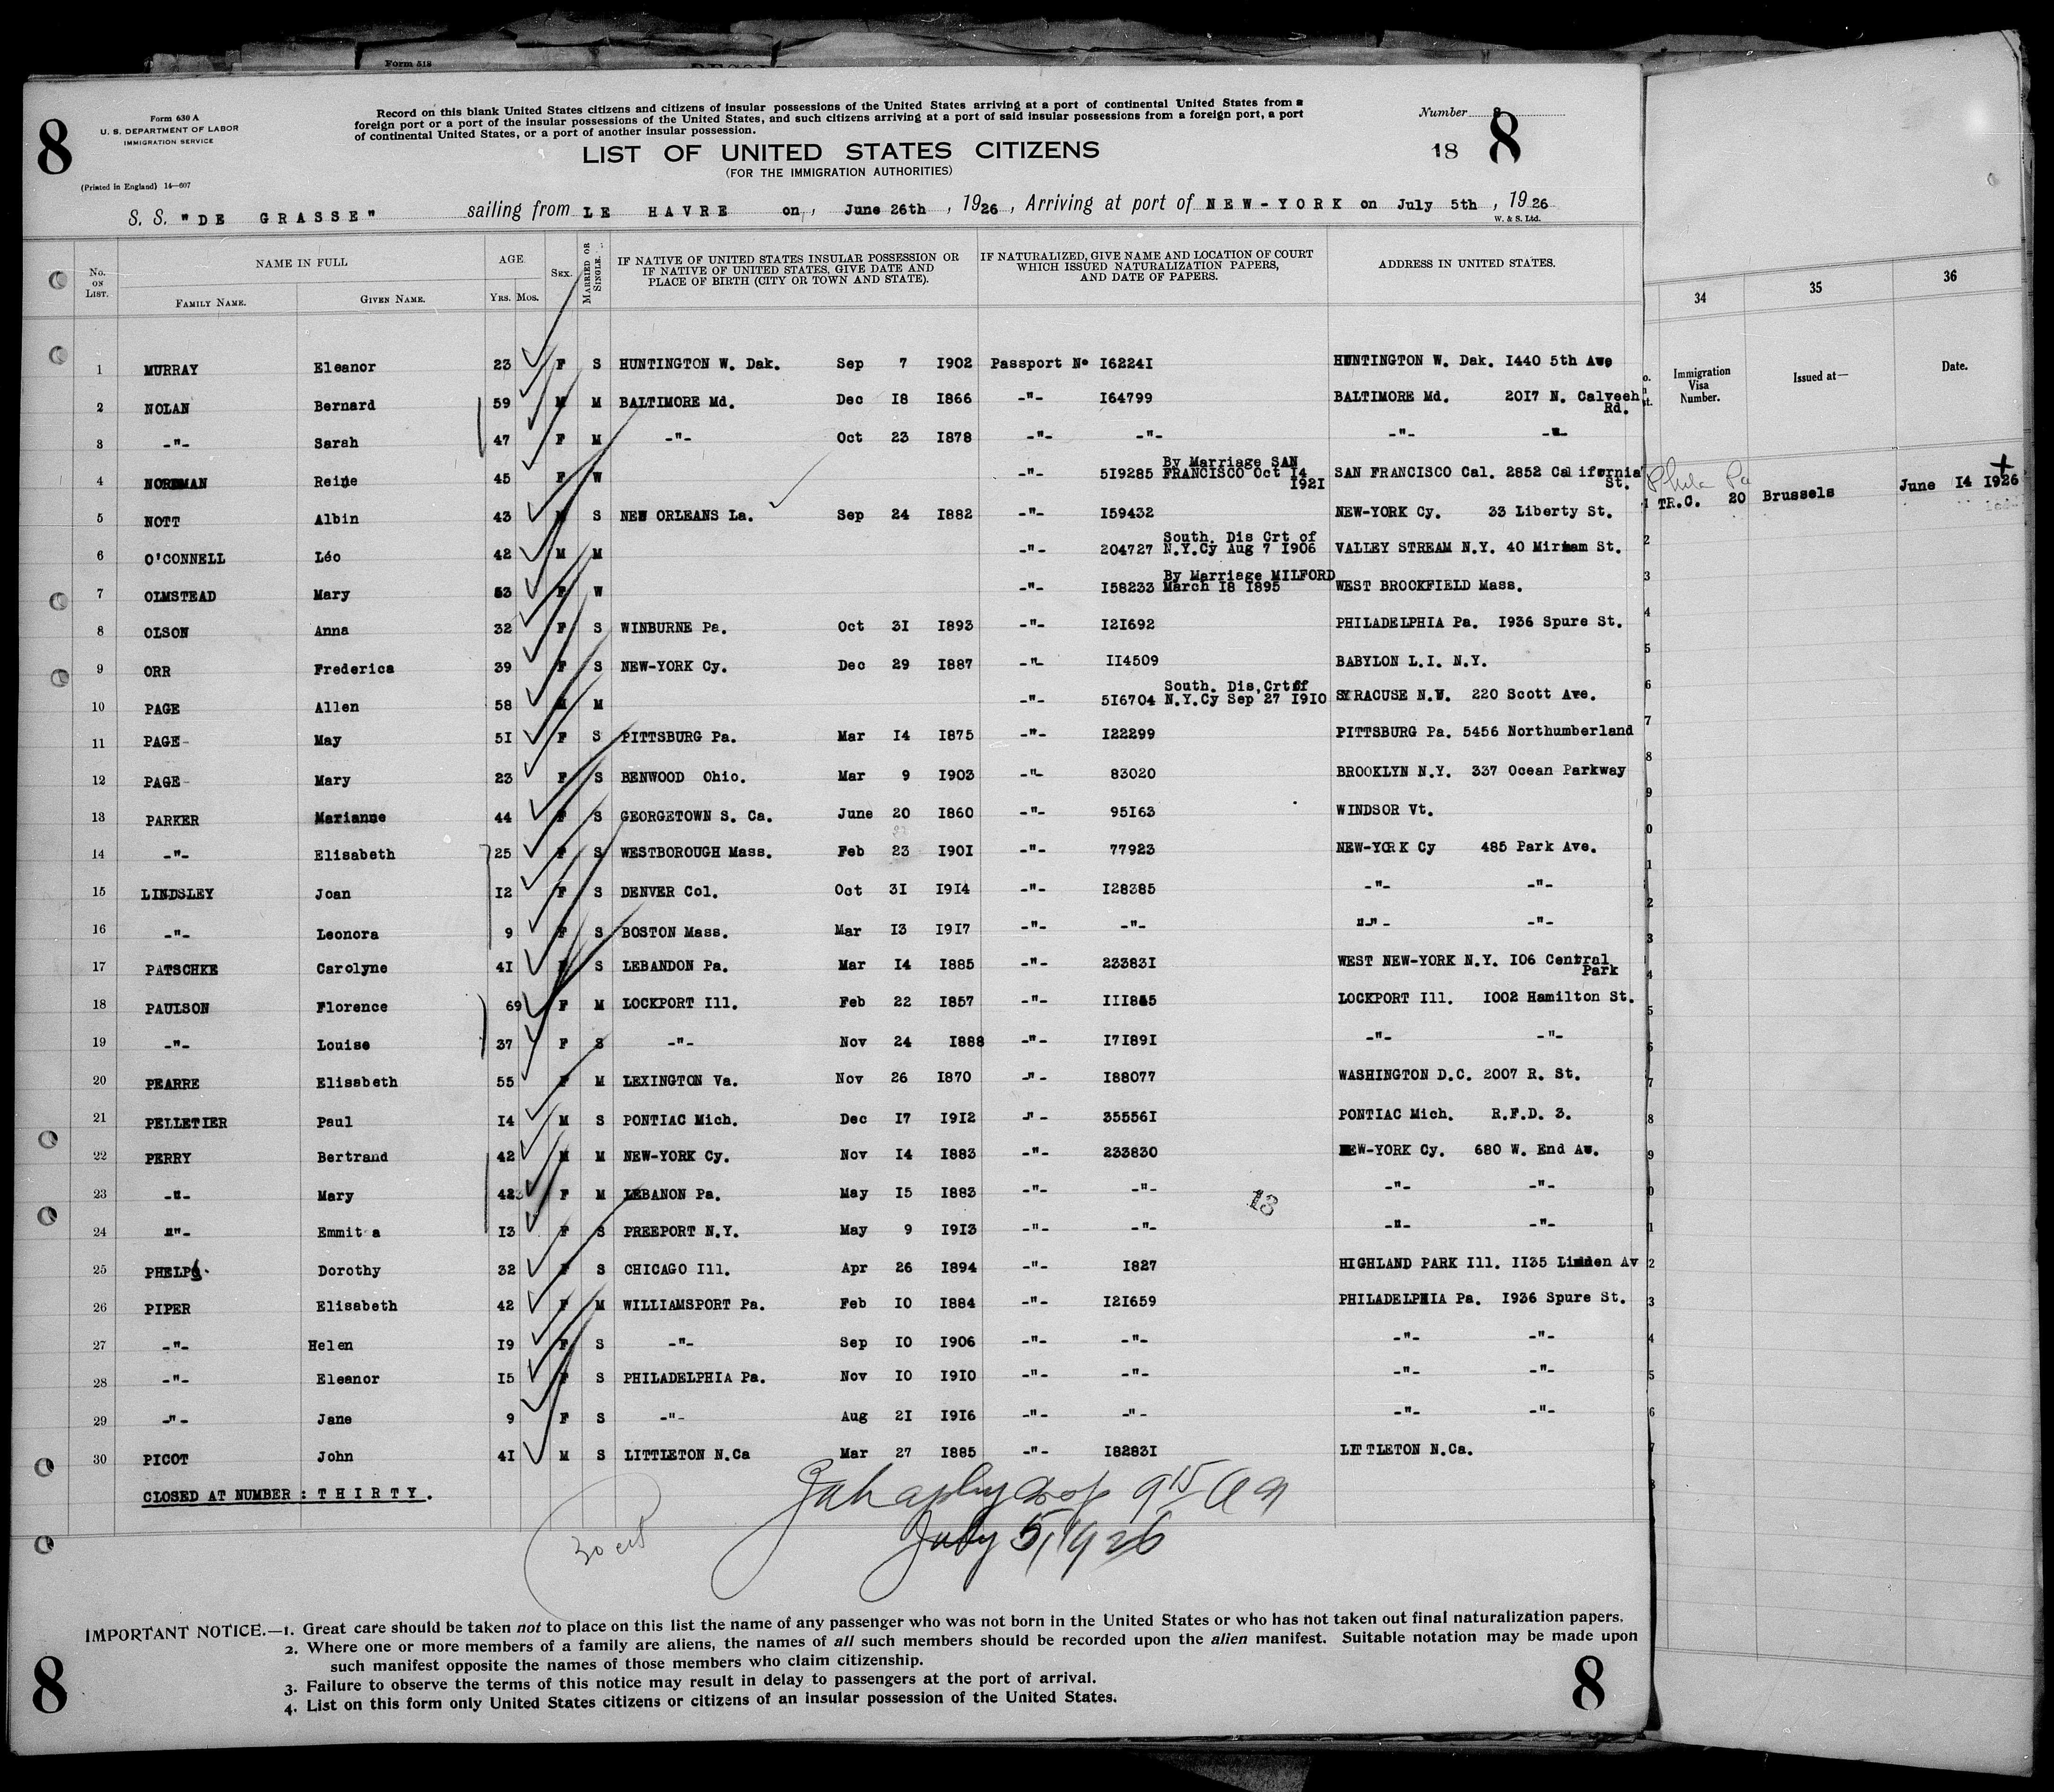 Form 518
8
Form 630 A
U. S. DEPARTMENT OF LABOR
IMMIGRATION SERVICE
(Printed in England) 14—607
Record on this blank United States citizens and citizens of insular possessions of the United States arriving at a port of continental United States from a
foreign port or a port of the insular possessions of the United States, and such citizens arriving at a port of said insular possessions from a foreign port, a port
of continental United States, or a port of another insular possession.
LIST OF UNITED STATES CITIZENS
(FOR THE IMMIGRATION AUTHORITIES)
Number 8
18 8
S. S. "DE GRASSE" sailing from LE HAVRE on, June 26th, 1926, Arriving at port of NEW-YORK on July 5th, 1926
W. & S. Ltd.
No. ON LIST. NAME IN FULL FAMILY NAME. GIVEN NAME. AGE YRS. MOS. SEX. MARRIED OR SINGLE. IF NATIVE OF UNITED STATES INSULAR POSSESSION OR IF NATIVE OF UNITED STATES, GIVE DATE AND PLACE OF BIRTH (CITY OR TOWN AND STATE). IF NATURALIZED, GIVE NAME AND LOCATION OF COURT WHICH ISSUED NATURALIZATION PAPERS, AND DATE OF PAPERS. ADDRESS IN UNITED STATES.
1 MURRAY Eleanor 23 F S HUNTINGTON W. Dak. Sep 7 I902 Passport No I6224I HUNTINGTON W. Dak. I440 5th Ave
2 NOLAN Bernard 59 M M BALTIMORE Md. Dec I8 I866 -"- I64799 BALTIMORE Md. 20I7 N. Calveeh Rd.
3 -"- Sarah 47 F M -"- Oct 23 I878 -"- -"- -"- -"-
4 NORDMAN Reine 45 F W -"- 5I9285 By Marriage SAN FRANCISCO Oct I4 I92I SAN FRANCISCO Cal. 2852 California St.
5 NOTT Albin 43 M S NEW ORLEANS La. Sep 24 I882 -"- I59432 NEW-YORK Cy. 33 Liberty St.
6 O'CONNELL Léo 42 M M -"- 204727 South. Dis Crt of N.Y.Cy Aug 7 I906 VALLEY STREAM N.Y. 40 Miriam St.
7 OLMSTEAD Mary 53 F W -"- I58233 By Marriage MILFORD March I8 I895 WEST BROCKFIELD Mass.
8 OLSON Anna 32 F S WINBURNE Pa. Oct 3I I893 -"- I2I692 PHILADELPHIA Pa. I936 Spure St.
9 ORR Frederica 39 F S NEW-YORK Cy. Dec 29 I887 -"- II4509 BABYLON L.I. N.Y.
10 PAGE Allen 58 M M -"- 5I6704 South. Dis,Crt of N.Y.Cy Sep 27 I9I0 SYRACUSE N.Y. 220 Scott Ave.
11 PAGE- May 5I F S PITTSBURG Pa. Mar I4 I875 -"- I22299 PITTSBURG Pa. 5456 Northumberland
12 PAGE- Mary 23 F S BENWOOD Ohio. Mar 9 I903 -"- 83020 BROOKLYN N.Y. 337 Ocean Parkway
13 PARKER Marianne 44 F S GEORGETOWN S. Ca. June 20 I860 -"- 95I63 WINDSOR Vt.
14 -"- Elisabeth 25 F S WESTBOROUGH Mass. Feb 23 I90I -"- 77923 NEW-YORK Cy 485 Park Ave.
15 LINDSLEY Joan I2 F S DENVER Col. Oct 3I I9I4 -"- I28385 -"- -"-
16 -"- Leonora 9 F S BOSTON Mass. Mar I3 I9I7 -"- -"- -"- -"-
17 PATSCHKE Carolyne 4I F S LEBANDON Pa. Mar I4 I885 -"- 23383I WEST NEW-YORK N.Y. I06 Central Park
18 PAULSON Florence 69 F M LOCKPORT Ill. Feb 22 I857 -"- III845 LOCKPORT Ill. I002 Hamilton St.
19 -"- Louise 37 F S -"- Nov 24 I888 -"- I7I89I -"- -"-
20 PEARRE Elisabeth 55 F M LEXINGTON Va. Nov 26 I870 -"- I88077 WASHINGTON D.C. 2007 R. St.
21 PELLETIER Paul I4 M S PONTIAC Mich. Dec I7 I9I2 -"- 35556I PONTIAC Mich. R.F.D. 3.
22 PERRY Bertrand 42 M M NEW-YORK Cy. Nov I4 I883 -"- 233830 NEW-YORK Cy. 680 W. End Av.
23 -"- Mary 42 F M LEBANON Pa. May I5 I883 -"- -"- -"- -"-
13
24 -"- Emmita I3 F S PREEPORT N.Y. May 9 I9I3 -"- -"- -"- -"-
25 PHELPS. Dorothy 32 F S CHICAGO Ill. Apr 26 I894 -"- I827 HIGHLAND PARK Ill. II35 Linden Av
26 PIPER Elisabeth 42 F M WILLIAMSPORT Pa. Feb I0 I884 -"- I2I659 PHILADELPHIA Pa. I936 Spure St.
27 -"- Helen I9 F S -"- Sep I0 I906 -"- -"- -"- -"-
28 -"- Eleanor I5 F S PHILADELPHIA Pa. Nov I0 I9I0 -"- -"- -"- -"-
29 -"- Jane 9 F S -"- Aug 2I I9I6 -"- -"- -"- -"-
30 PICOT John 4I M S LITTLETON N.Ca Mar 27 I885 -"- I8283I LITTLETON N.Ca.
CLOSED AT NUMBER : THIRTY.
9 15
July 5, 1926
30
IMPORTANT NOTICE.—1. Great care should be taken not to place on this list the name of any passenger who was not born in the United States or who has not taken out final naturalization papers.
2. Where one or more members of a family are aliens, the names of all such members should be recorded upon the alien manifest. Suitable notation may be made upon
such manifest opposite the names of those members who claim citizenship.
3. Failure to observe the terms of this notice may result in delay to passengers at the port of arrival.
4. List on this form only United States citizens or citizens of an insular possession of the United States.
8 8
34 35 36
Immigration Visa Number. Issued at— Date.
Phila Pa
TR.C. 20 Brussels June I4 I926